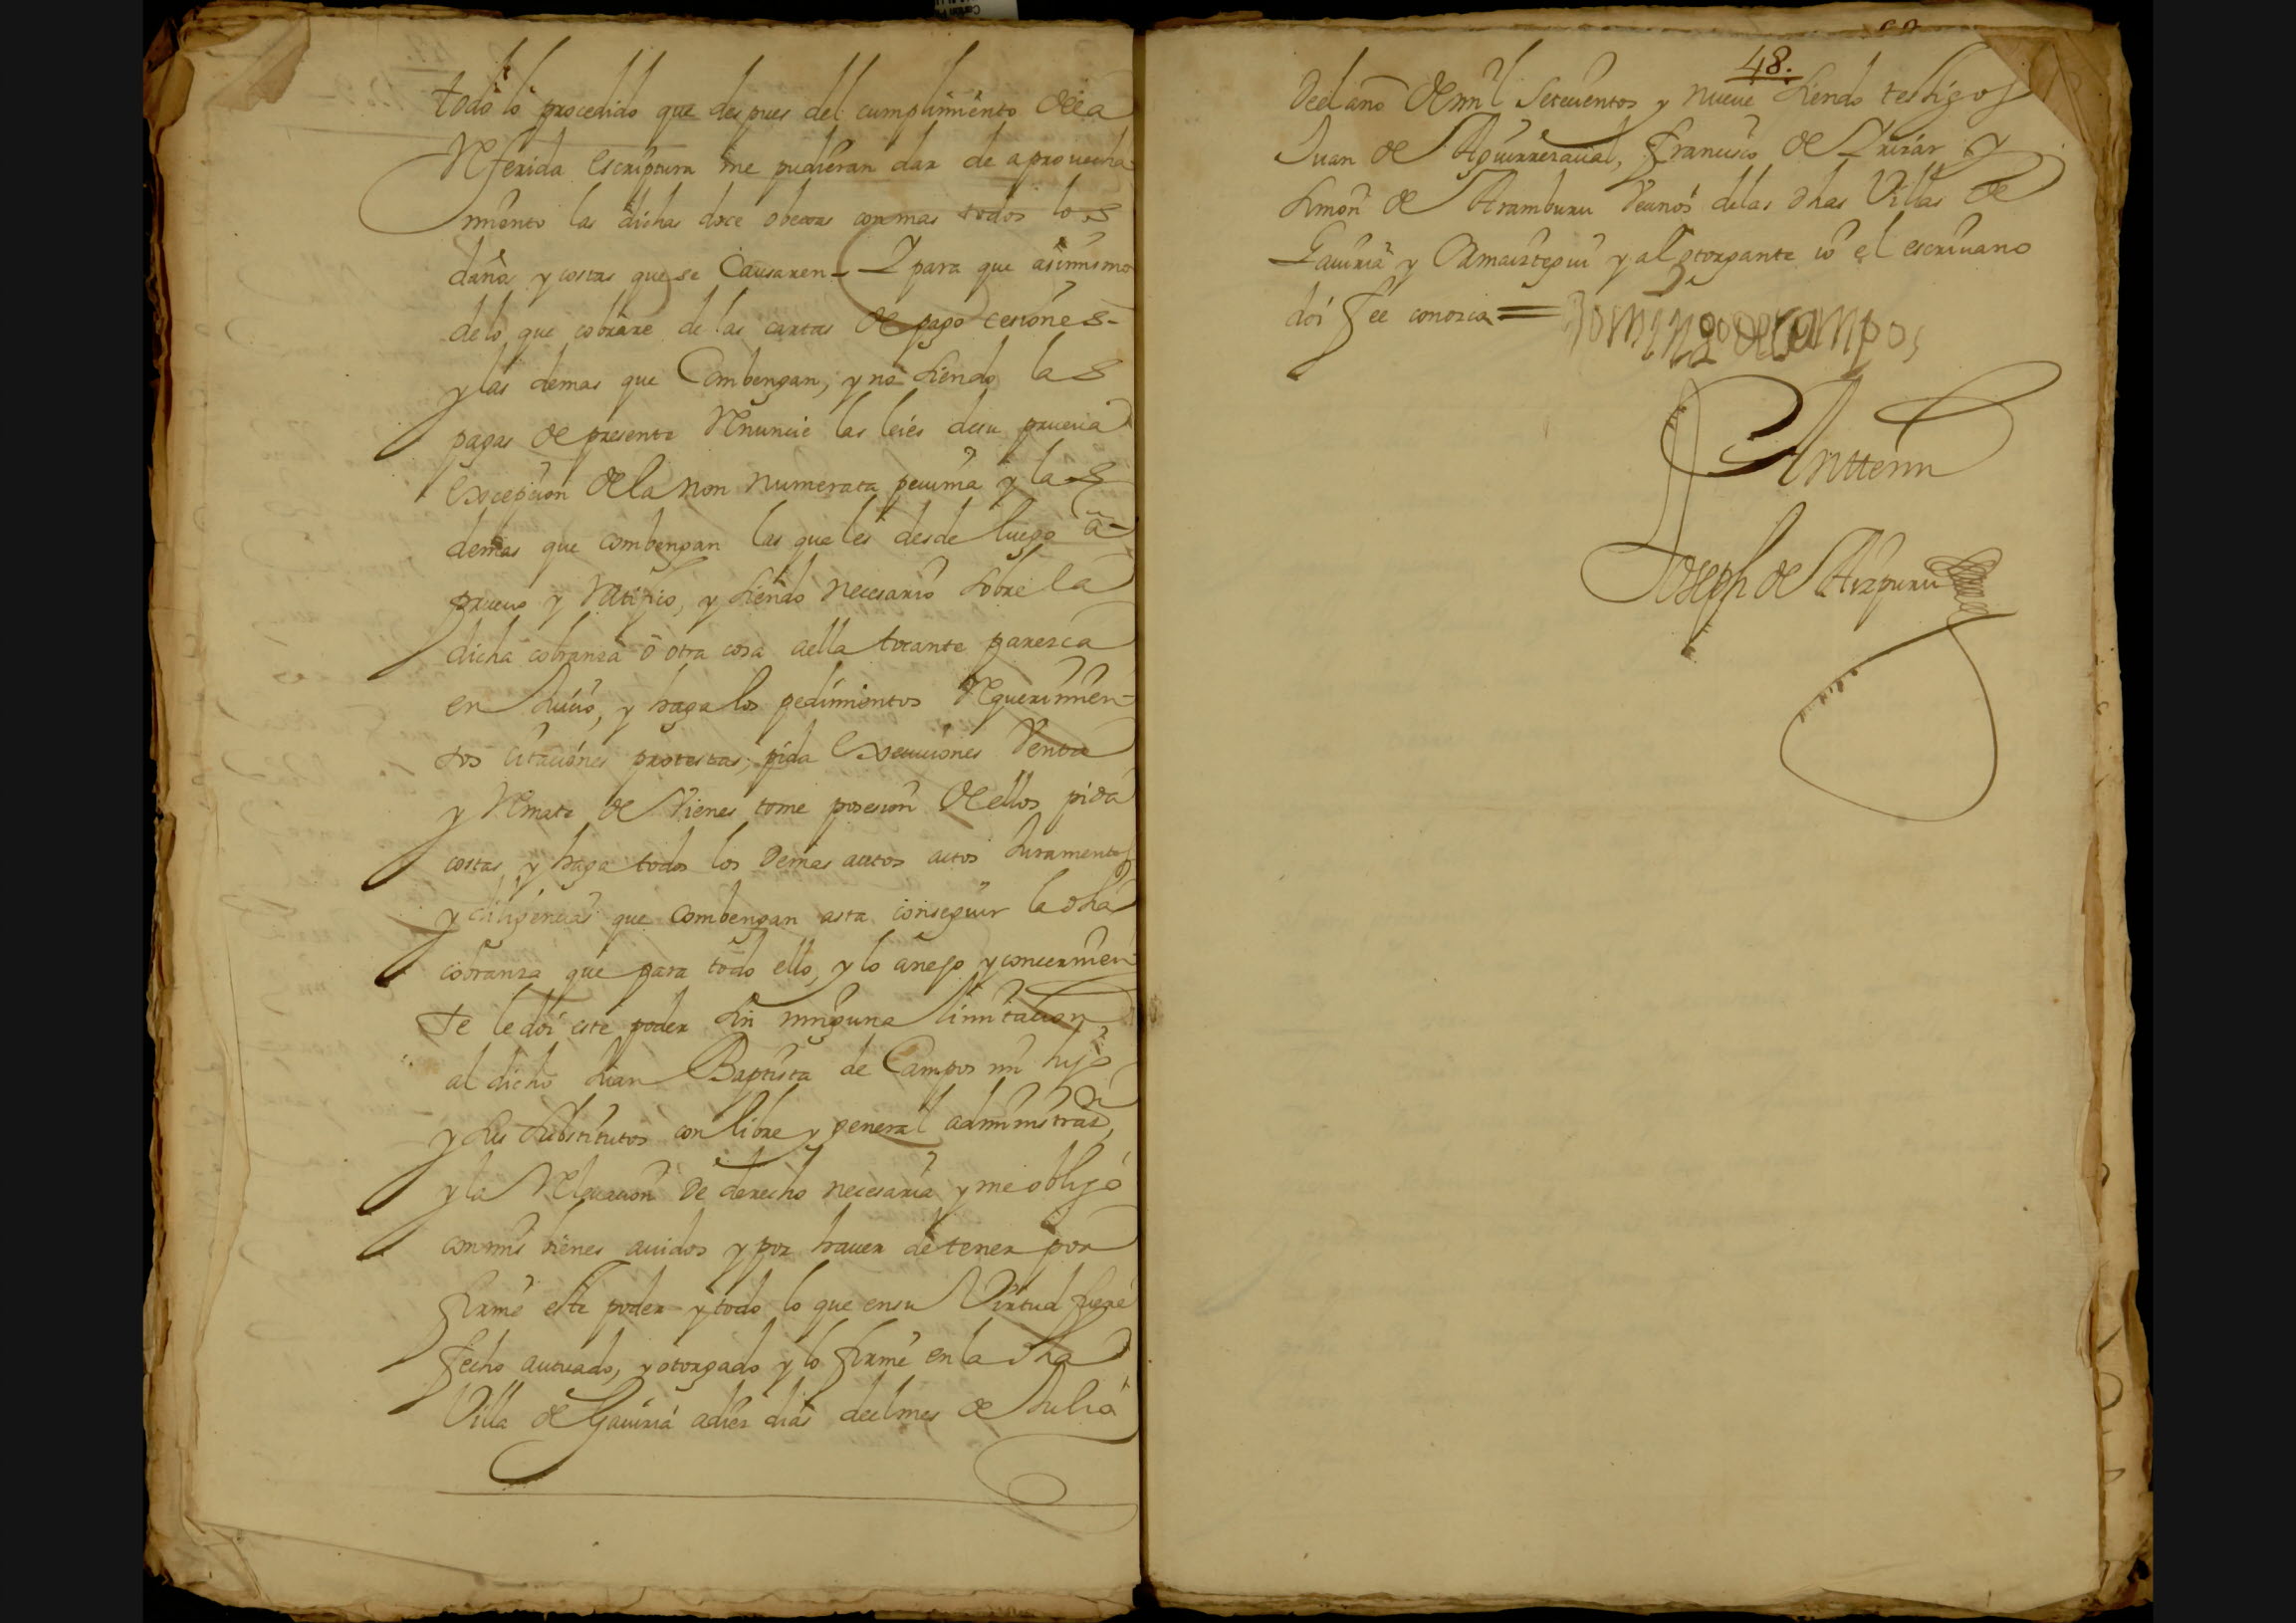 todo lo procedido que despues del cumplimiento dela
Referida escriptura me pudieran dar de aprovecha
miento las dichas doce obexas con mas todos los
daños y costas que se Causaren - Y para que asimismo
de lo que cobrare de las cartas de pago cesiones -
y las demas que Combengan, y no siendo las
pagas de presente Renuncie las leies de su prueua
excepcion de la non numerata pecunia y las
demas que combengan las quales desde luego a-
prueuo y Ratifico, y siendo necesario sobre la
dicha cobranza o otra cosa a ella tocante paresca
en Juicio, y haga los pedimientos Requerimien-
tos citaciones protestas, pida execuciones Venta
y Remate de Vienes tome posesion de ellos pida
costas y haga todos los demas autos actos Juramentos
y diligencias que combengan asta conseguir la dha
cobranza que para todo ello, y lo anejo y concernien
te le doi este poder sin ninguna limitacion
al dicho Juan Baptista de Campos mi hijo
y sus substitutos con libre y general administraz.on
y la Relevacion de derecho necesaria y me obligo
con mis bienes auidos y por hauer de tener por
firme este poder y todo lo que en su Virtud fuere
fecho autuado, y otorgado y lo firme en la dha
Villa de Gauiria a diez dias del mes de Julio
48.
del año de mil setecientos y nueve siendo testigos
Juan de Aguirrezaual, Francisco de Irizar y
Simon de Aramburu Vecinos de las dhas Villas de
Gauiria y Ormaiztegui y al otorgante io el escriuano
doi fee conozco = Domingo de campos
Ante mi
Joseph de Aizpuru